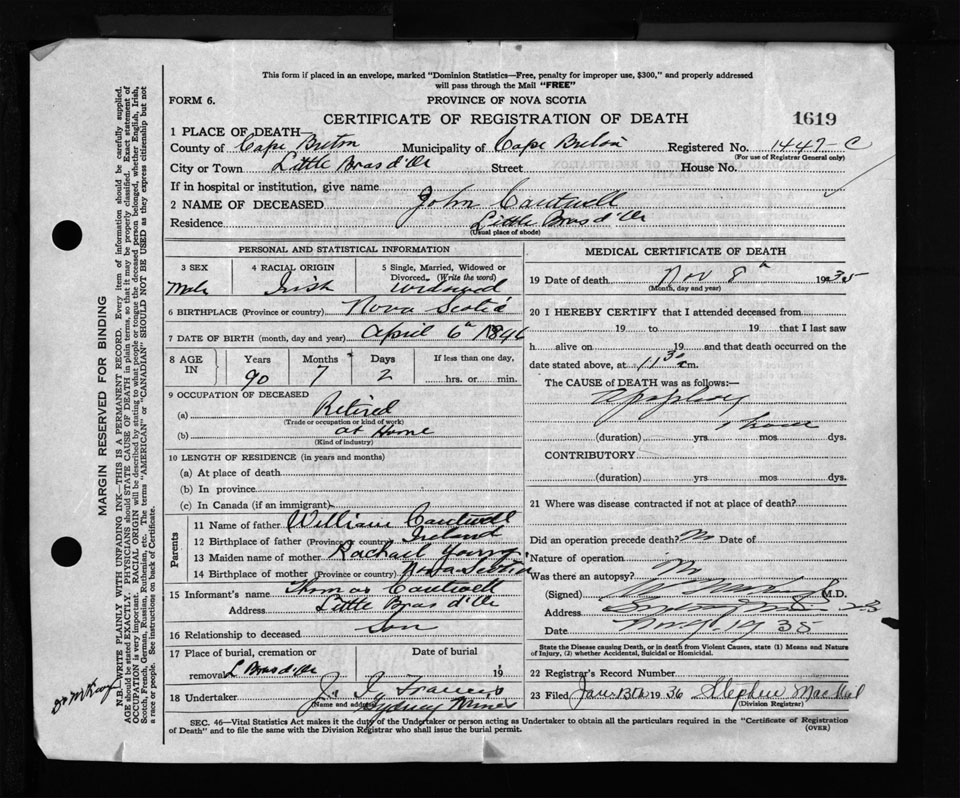 This form if placed in an envelope, marked "Dominion Statistics—Free, penalty for improper use, $300," and properly addressed
will pass through the Mail "FREE"
FORM 6.
PROVINCE OF NOVA SCOTIA
CERTIFICATE OF REGISTRATION OF DEATH
1619
1 PLACE OF DEATH—
County of Cape Breton Municipality of Cape Breton Registered No. 1447-C
(For use of Registrar General only)
City or Town Little Bras d'Or Street House No.
If in hospital or institution, give name
2 NAME OF DECEASED John Cantwell
Residence Little Bras d'Or
(Usual place of abode)
PERSONAL AND STATISTICAL INFORMATION
3 SEX 4 RACIAL ORIGIN 5 Single, Married, Widowed or Divorced. (Write the word)
Male Irish Widowed
6 BIRTHPLACE (Province or country) Nova Scotia
7 DATE OF BIRTH (month, day and year) April 6th
8 AGE IN Years Months Days If less than one day,
90 7 2 hrs. or min.
9 OCCUPATION OF DECEASED
(a) Retired
(Trade or occupation or kind of work)
(b) at Home
(Kind of industry)
10 LENGTH OF RESIDENCE (in years and months)
(a) At place of death
(b) In province
(c) In Canada (if an immigrant)
Parents
11 Name of father William Cantwell
12 Birthplace of father (Province or country) Ireland
13 Maiden name of mother Rachael Young
14 Birthplace of mother (Province or country) Nova Scotia
15 Informant's name Thomas Cantwell
Address Little Bras d'Or
16 Relationship to deceased Son
17 Place of burial, cremation or removal L Bras d'Or Date of burial 19
18 Undertaker J. J. Francis
(Name and address) Sydney Mines
MEDICAL CERTIFICATE OF DEATH
19 Date of death Nov 8th 1935
(Month, day and year)
20 I HEREBY CERTIFY that I attended deceased from
19 to 19 that I last saw
h alive on 19 and that death occurred on the
date stated above, at 11 30 m.
The CAUSE OF DEATH was as follows:—
Apoplexy
1 hour
(duration) yrs mos dys.
CONTRIBUTORY
(duration) yrs mos dys.
21 Where was disease contracted if not at place of death?
Did an operation precede death? No Date of
Nature of operation
Was there an autopsy? No
(Signed) M.D.
Address
Date Nov 9 1935
State the Disease causing Death, or in death from Violent Causes, state (1) Means and Nature
of Injury, (2) whether Accidental, Suicidal or Homicidal.
22 Registrar's Record Number
23 Filed Jan 13th 1936 Stephen
(Division Registrar)
SEC. 46—Vital Statistics Act makes it the duty of the Undertaker or person acting as Undertaker to obtain all the particulars required in the "Certificate of Registration
of Death" and to file the same with the Division Registrar who shall issue the burial permit.
(OVER)
MARGIN RESERVED FOR BINDING
N.B.—WRITE PLAINLY WITH UNFADING INK—THIS IS A PERMANENT RECORD. Every item of information should be carefully supplied.
AGE should be stated EXACTLY. PHYSICIANS should STATE CAUSE OF DEATH in plain terms, so that it may be properly classified. Exact statement of
OCCUPATION is very important. RACIAL ORIGIN will be described by stating to what people or tongue the deceased person belonged, whether English, Irish,
Scotch, French, German, Russian, Ruthenian, etc. The terms "AMERICAN" or "CANADIAN" SHOULD NOT BE USED as they express citizenship but not
a race or people. See instructions on back of Certificate.
Dr McKay